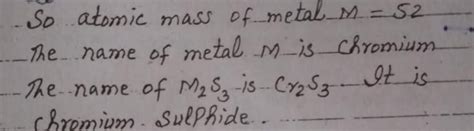 So atomic mass of metal M = 52
The name of metal M is Chromium
The name of M₂S₃ is Cr₂S₃ It is
Chromium Sulphide.